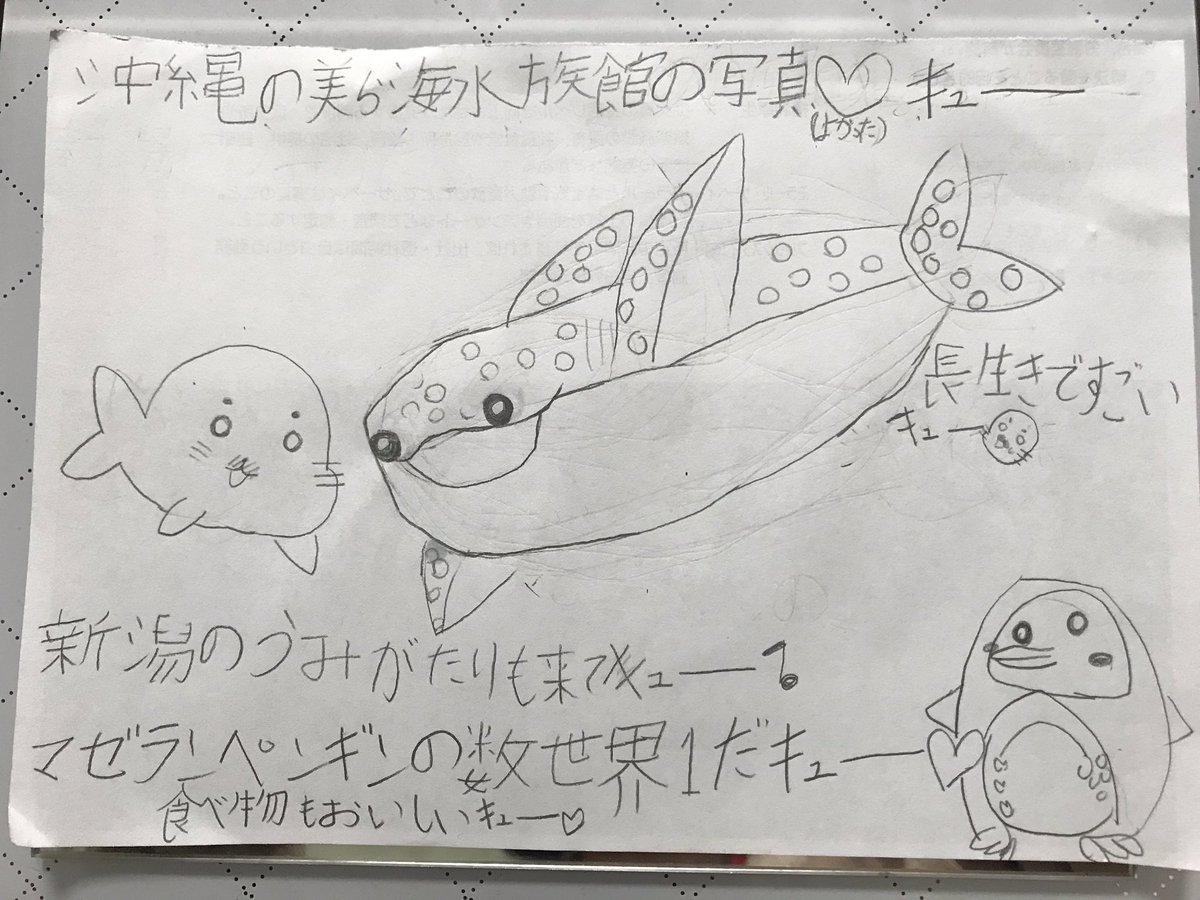 沖縄の美ら海水族館の写真♡キュー
(よかった)
長生きですごい
キュー
新潟のうみがたりも来てキュー♪
マゼランペンギンの数世界1だキュー
食べ物もおいしいキュー♡